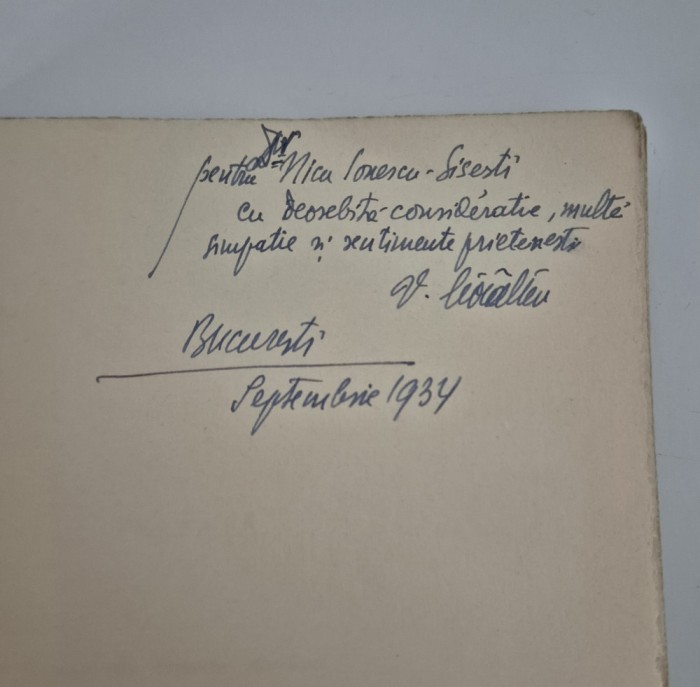 pentru Dr Nicu Ionescu-Sisesti
cu deosebită consideratie, multă
simpatie și sentimente prietenesti
V.
București
Septembrie 1934